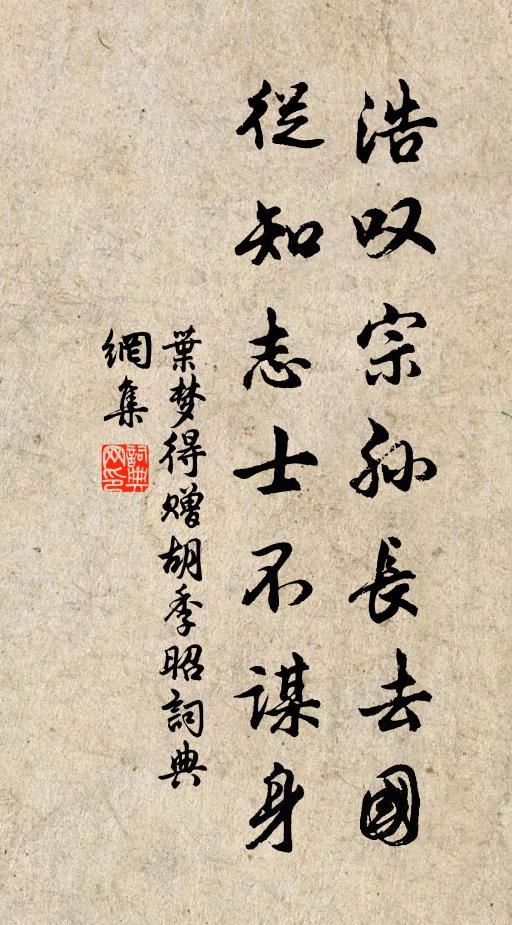 浩叹宗孙長去國
從知志士不謀身
葉梦得赠胡季昭詞典
網集
詞典
网印